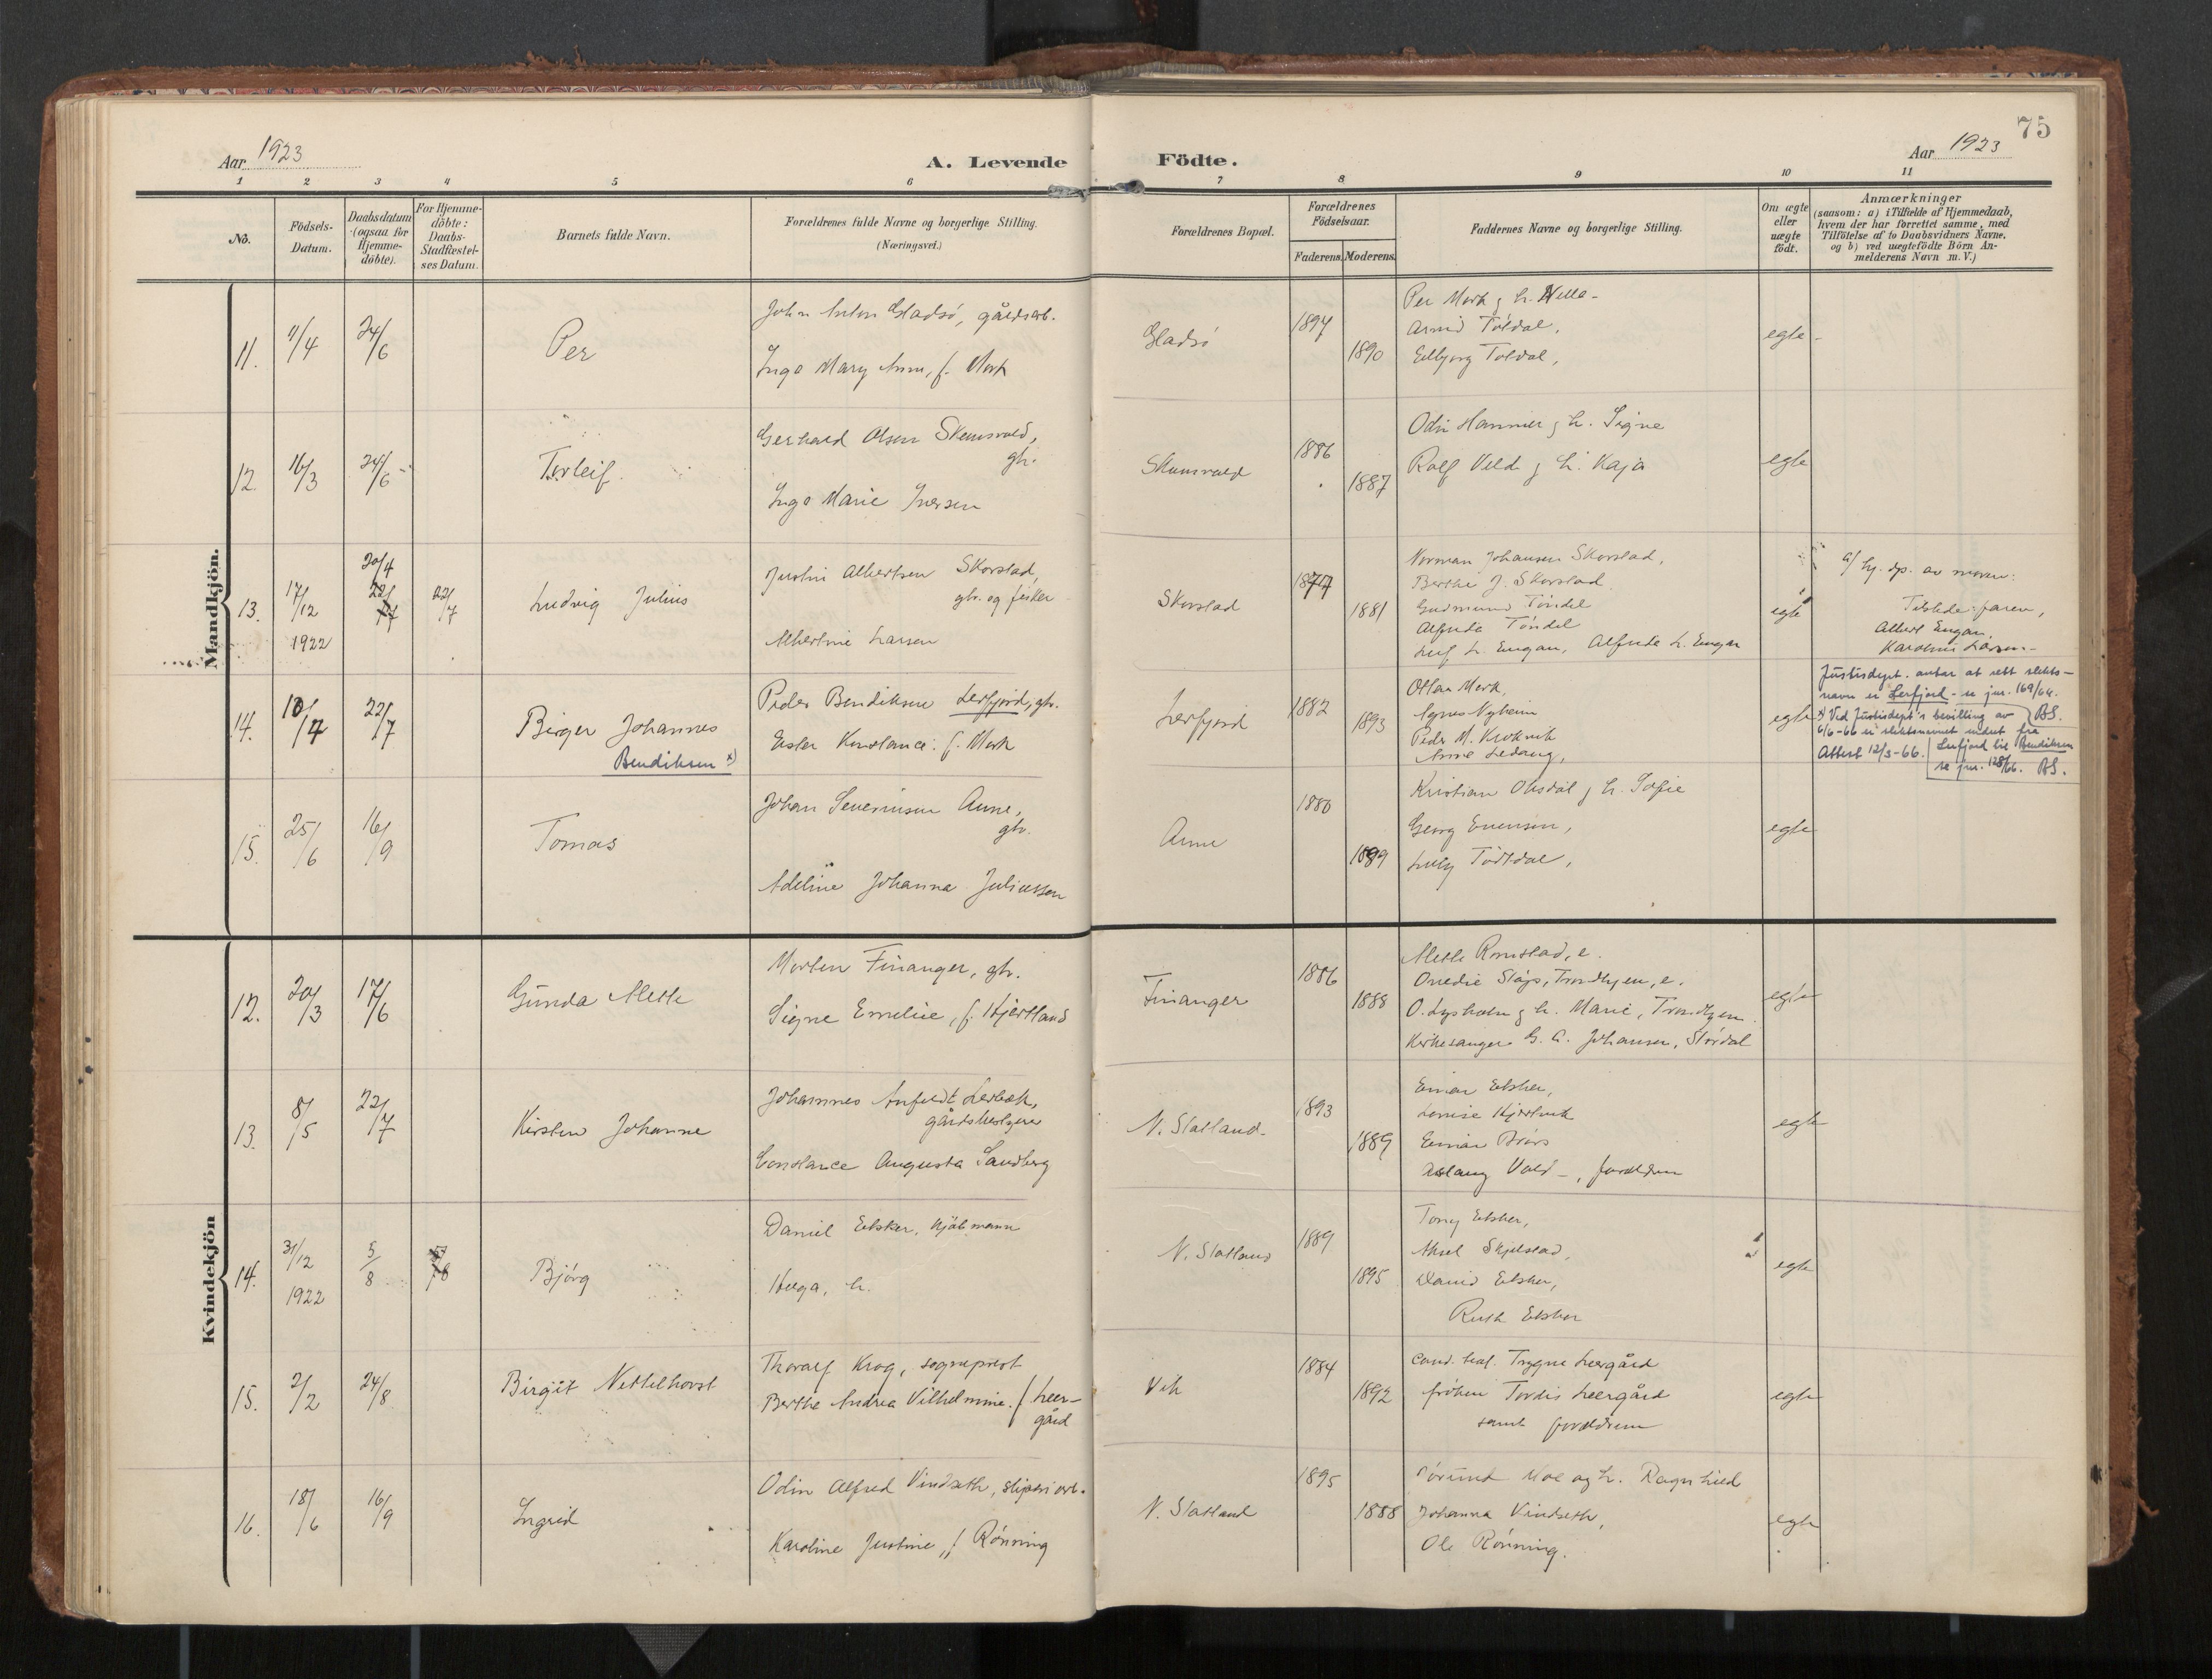 75
Aar 1923
A. Levende
Födte.
Aar 1923
1 2 3 4 5 6 7 8 9 10 11
No.
Födsels-
Datum.
Daabsdatum
(ogsaa for
Hjemme-
döbte).
For Hjemme-
döbte:
Daabs-
Stadfæstel-
ses Datum.
Barnets fulde Navn.
Forældrenes fulde Navne og borgerlige Stilling.
(Næringsvei.)
Forældrenes Bopæl.
Forældrenes
Födselsaar.
Faderens. Moderens.
Faddernes Navne og borgerlige Stilling.
Om ægte
eller
uægte
födt.
Anmærkninger
(saasom: a) i Tilfælde af Hjemmedaab,
hvem der har forrettet samme, med
Tilföielse af to Daabsvidners Navne,
og b) ved uægtefödte Börn An-
melderens Navn m. V.)
Mandkjön.
11. 11/4 24/6
Per
John Anton Gladsö, gårdsarb.
Inga Mary Ann, f. Mork
Gladsö
1894
1890
Per Mork g h.
Arnid Töldal,
Eilbjorg Toldal,
egte
12. 16/3 24/6
Torleif.
Gerhard Olsen Skemsvold,
gbr.
Inga Marie Iversen
1886
1887
Odin Hammer g h. Signe
Rolf Veld g h. Kaja
egte
13. 17/12
1922
20/4
22/7
22/7
Ludvig Julius
Justin Albertsen Skorstad,
gbr. og fisker
Albertine Larsen
Skorstad
1877
1881
Norman Johansen Skorstad,
Berthe J. Skorstad
Gudmund Töndel
Alfrida Töndel
Leif L. Engan, Alfrida L. Engan
egte
a/ hj. dp. av moren:
Tilstede: faren,
Albert Engan,
Karoline Larsen
14. 10/7 22/7
Birger Johannes
Bendiksen x)
Peder Bendiksen Lerfjord, gbr.
Ester Konstance f. Mork
Lerfjord
1882
1893
Ottar Mork,
Agnes Nyheim
Peder M. Krokvik
Anne Ledang,
egte
Justisdept. antar at rett slekts-
navn er Lerfjord - se jnr. 169/64.
BS.
x) Ved Justisdept's bevilling av
6/6-66 er slektsnavnet endret fra
Lerfjord til Bendiksen
Attest 12/3-66.
se jnr. 128/66. BS.
15. 25/6 16/9
Tomas
Johan Severinsen Aune,
gbr.
Adeline Johanna Juliussen
Aune
1880
1899
Kristian Olisdal g h. Sofie
Georg Evensen,
egte
Kvindekjön
12. 20/3 17/6
Gunda Mette
Morten Finanger, gbr.
Signe Emelie, f. Hjertland
Finanger
1886
1888
Mette Romstad, e.
O. Lysholm g h. Marie, Trondhjem
Kirkesanger G. A. Johansen, Stördal
egte
13. 8/5 22/7
Kirsten Johanne
Johannes Anfeldt Lerbek,
gårdsbestyrer
Constance Augusta Sandberg
N. Statland.
1893
1889
Einar Ebsker,
Aslaug Vold -, foreldrene
egte
14. 31/12
1922
5/8
Bjórg
Daniel Ebsker, kjöbmann
Helga, h.
N. Statland
1889
1895
Tony Ebsker,
Aksel Skjelstad,
David Ebsker,
Ruth Ebsker
egte
15. 2/2 24/8
Birgit Nettelhorst
Thoralf Krog, sogneprest
Berthe Andrea Vilhelmine f. Leer-
gård
Vik
1884
1892
cand. teol. Trygve Leergård
fröken Tordis Leergård
samt foreldrene
egte
16. 18/6 16/9
Ingrid
Odin Alfred Vindseth, sliperiarb.
Karoline Justine, f. Rönning
N. Statland
1895
1888
Jörund Moe og h. Ragnhild
Johanna Vindseth,
Ole Rönning.
egte